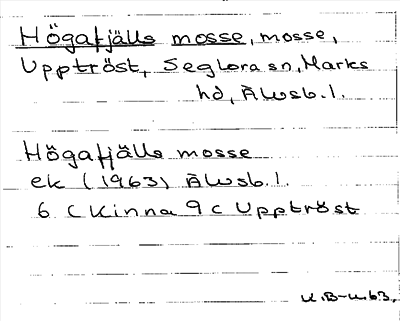 Högafjälls mosse, mosse,
Upptröst, Seglora sn, Marks
hd, Älvsb. l.
Högafjälls mosse
ek (1963) Älvsb. l.
6 C Kinna 9 c Upptröst
U.B-n.63.